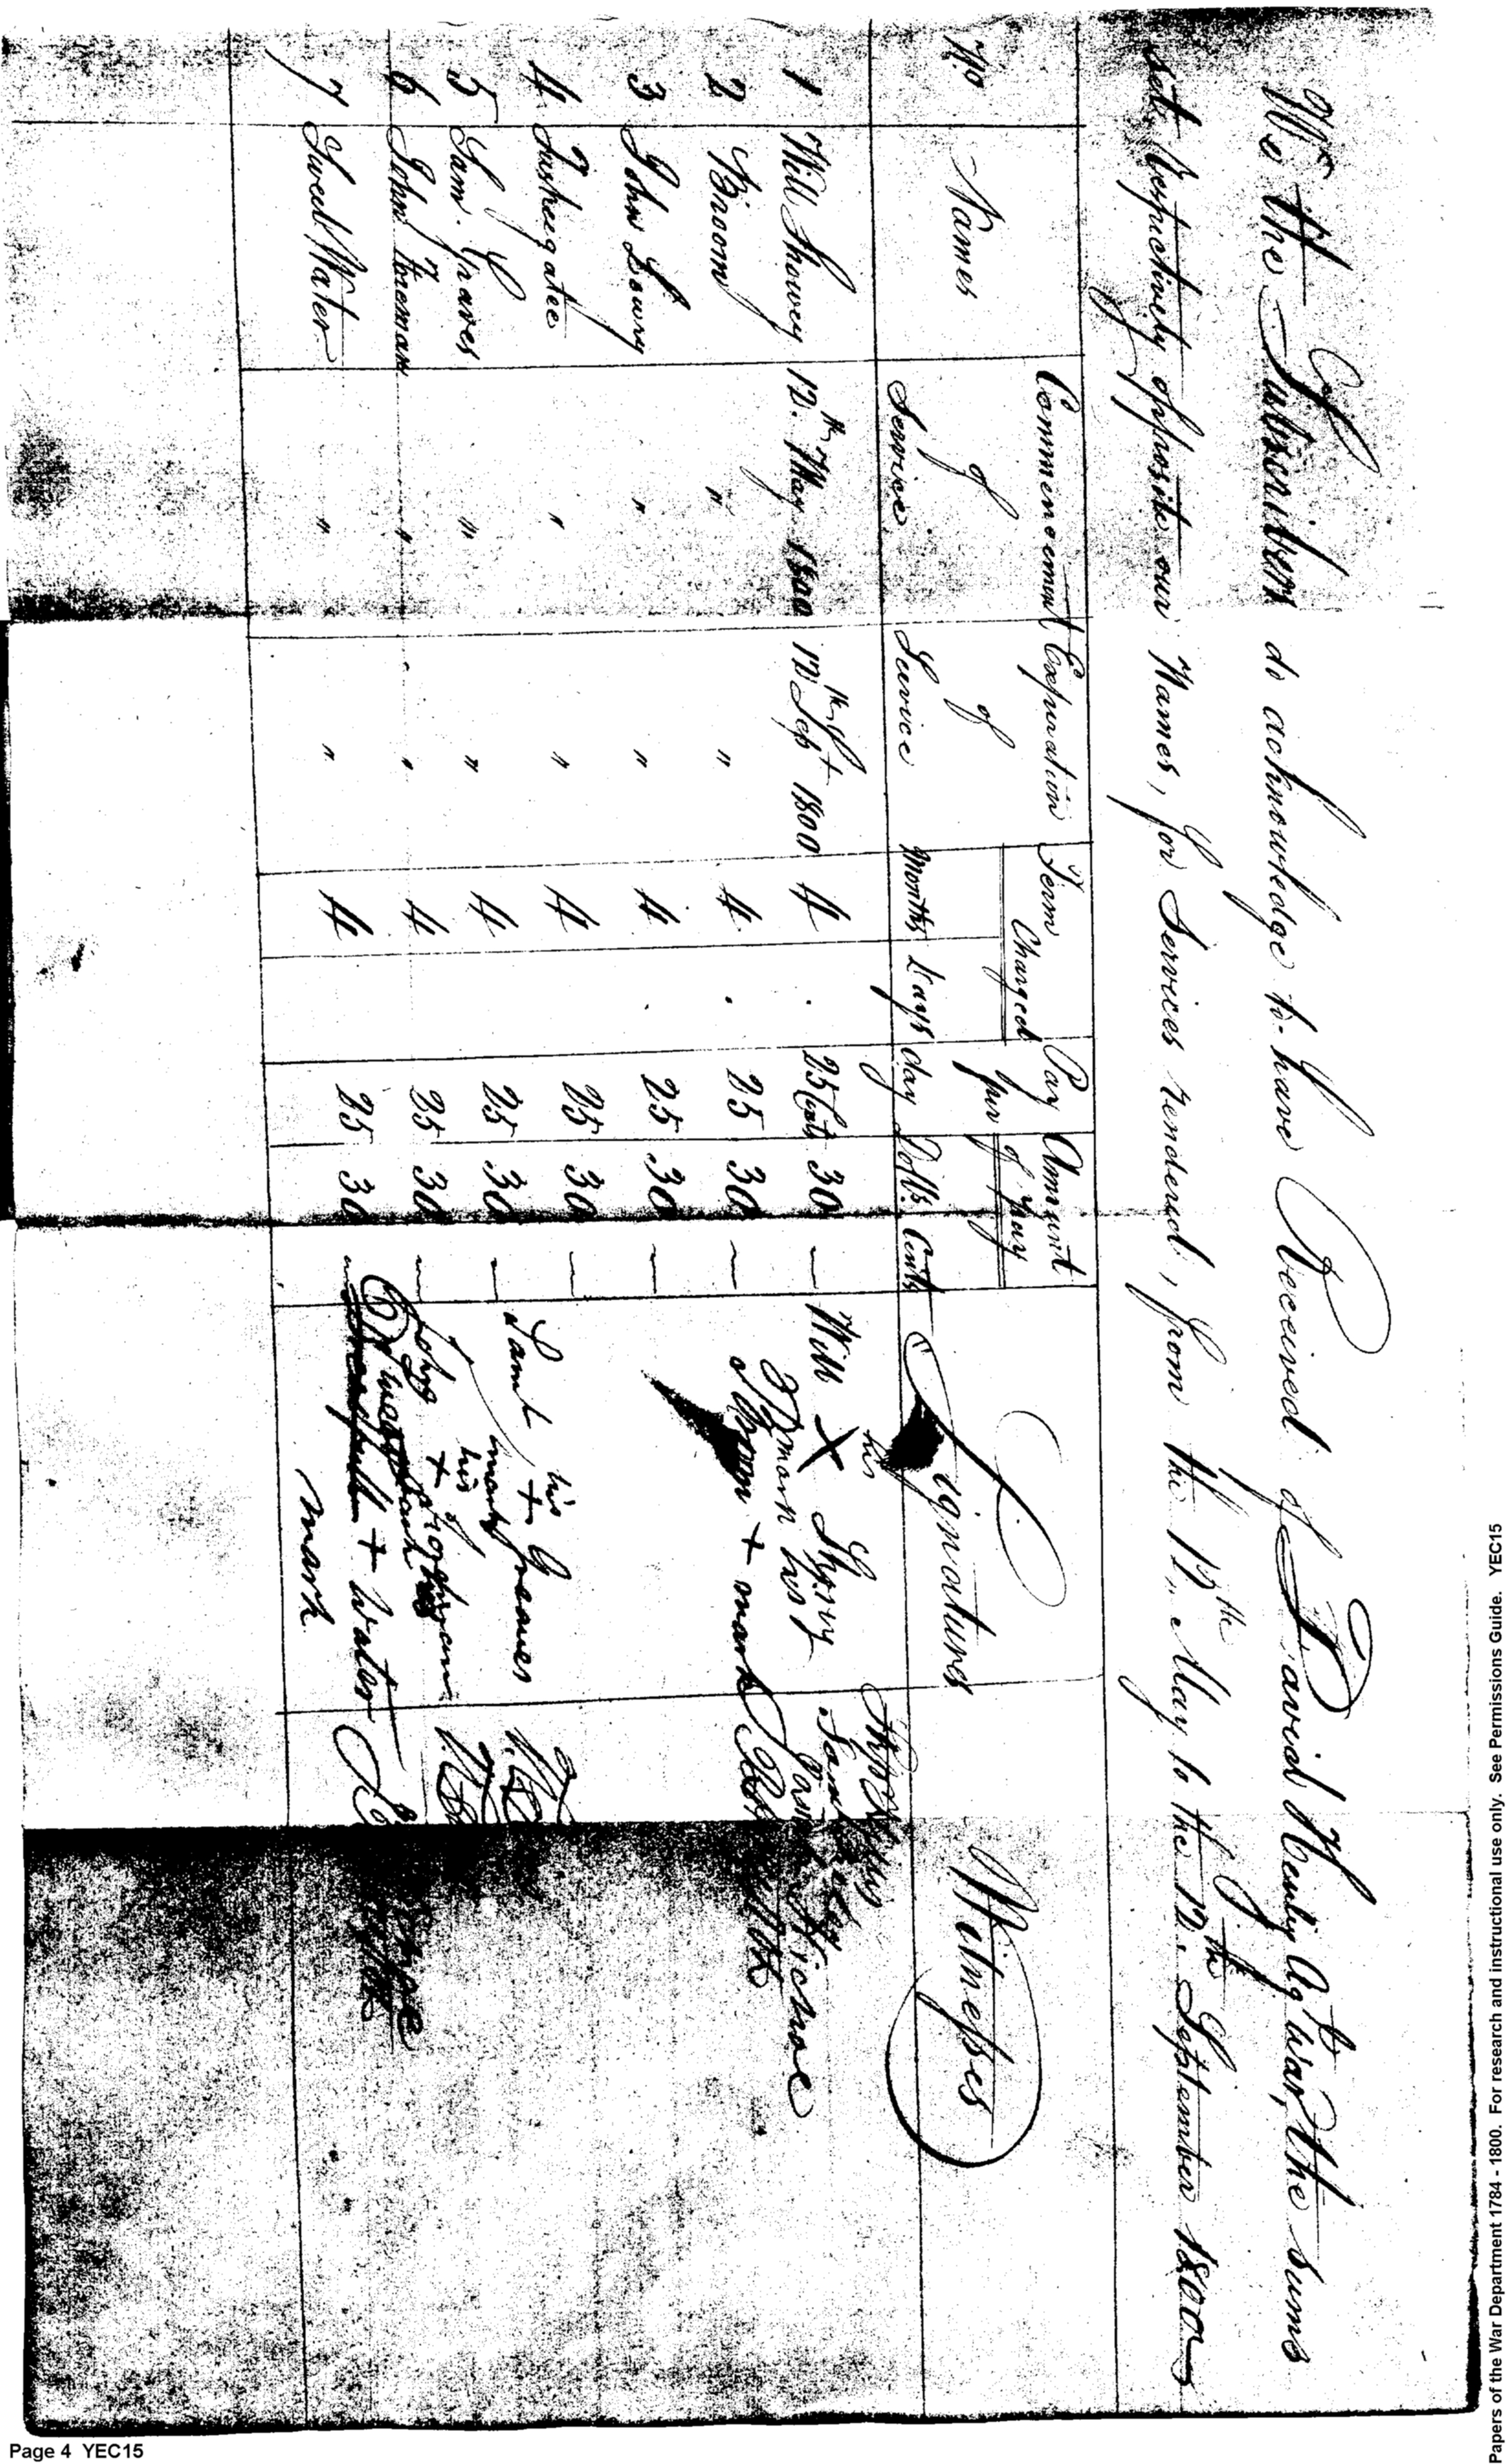 We the Subscribers do acknowledge to have Received of David Henley Agt War, the sums
set respectively opposite our Names, for Services rendered, from the 12th May to the 12th September 1800
No Names Commencement of Service Expiration of Service Term Charged Months Days Pay per day Amount of pay Dolls. Cents Signatures Witnesses
1 Will Shorey 12th May 1800 12th Sept 1800 4 25 Cents 30 — Will X his Shorey
2 Broom " " 4 25 30 — Broom + mark his
3 John Lowry " " 4 25 30 —
4 Tusheegatee " " 4 25 30 —
5 Sam. Graves " " 4 25 30 — Saml his + mark Graves
6 John Foreman " " 4 25 30 — John his + mark
7 Sweet Water " " 4 25 30 — Sweet + Water mark
Page 4 YEC15
Papers of the War Department 1784 - 1800. For research and instructional use only. See Permissions Guide. YEC15